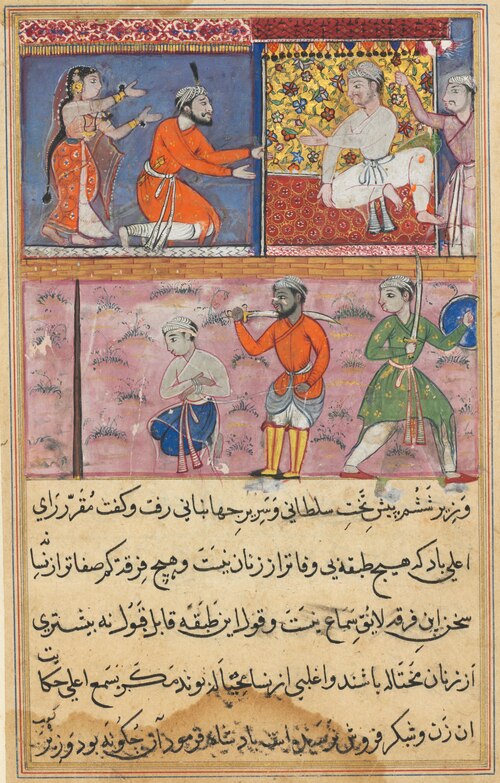 وزیر ششم پیش تخت سلطانی و سریر جهابنانی رفت و کفت مقرر رای
اعلی باد که هیچ طبقه بی وفاتر از زنان نیست و هیچ فرقه کم صفاتر از نسا نه
سخن این فرقه لایق سماع نیست و قول این طبقه قابل قبول نه بیشتری
از زنان محتاله باشند و اغلبی از نسا مغتاله بوند مکر بسمع اعلی حکایت
ان زن و شکر فروش نرسیده است پادشاه فرمود آن چکونه بود وزیر کوید